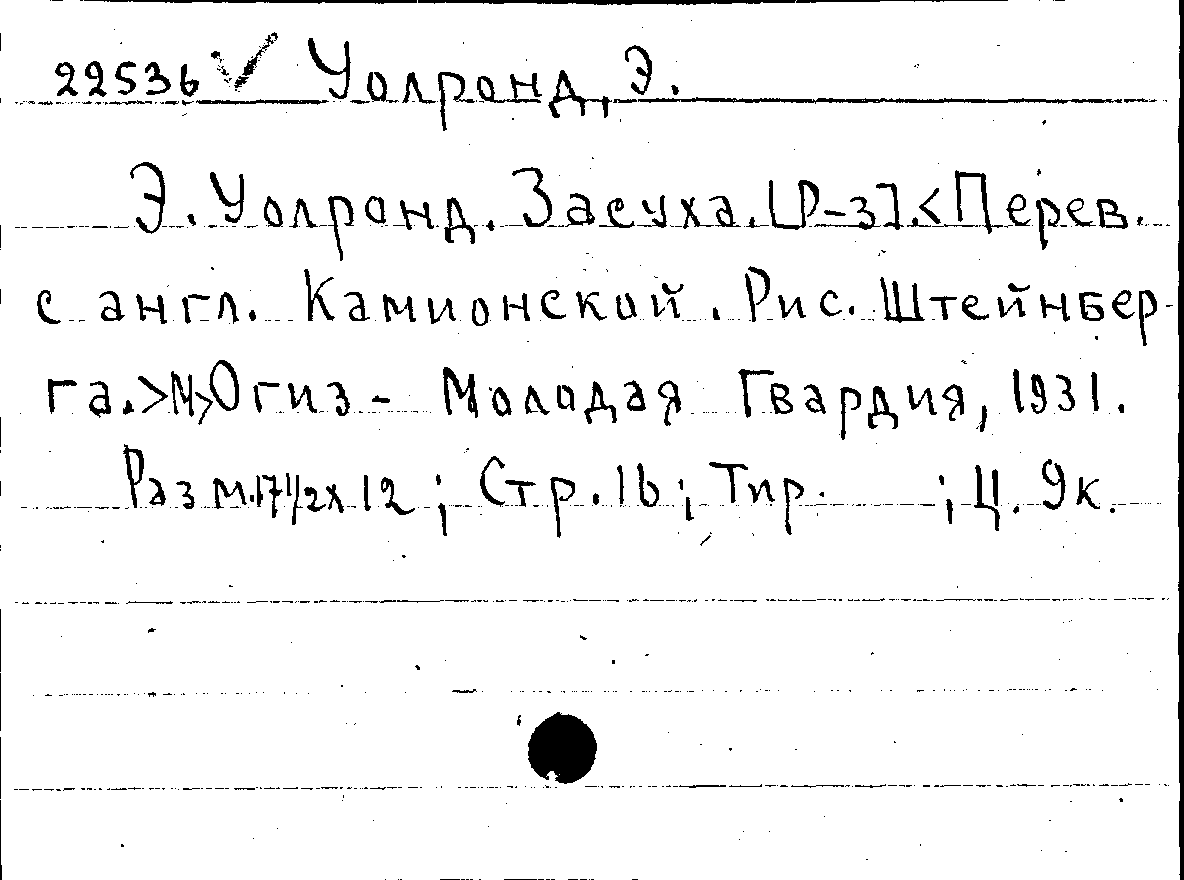 22536 ✓ Уолронд, Э.
Э. Уолронд. Засуха. [Р-з]. <Перев.
с англ. Камионской. Рис. Штейнбер-
га.> М> Огиз - Молодая Гвардия, 1931.
Разм. 17 1/2 x 12 ; Стр. 16 ; Тир. ; Ц. 9к.